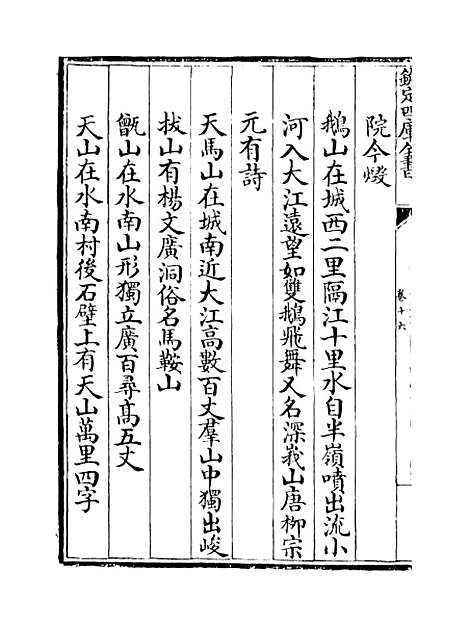 欽定四庫全書
卷十六
院今燬
鵝山在城西二里隔江十里水自半嶺噴出流小
河入大江遠望如雙鵝飛舞又名深峩山唐柳宗
元有詩
天馬山在城南近大江高數百丈羣山中獨出峻
拔山有楊文廣洞俗名馬鞍山
甑山在水南山形獨立廣百尋髙五丈
天山在水南村後石壁上有天山萬里四字